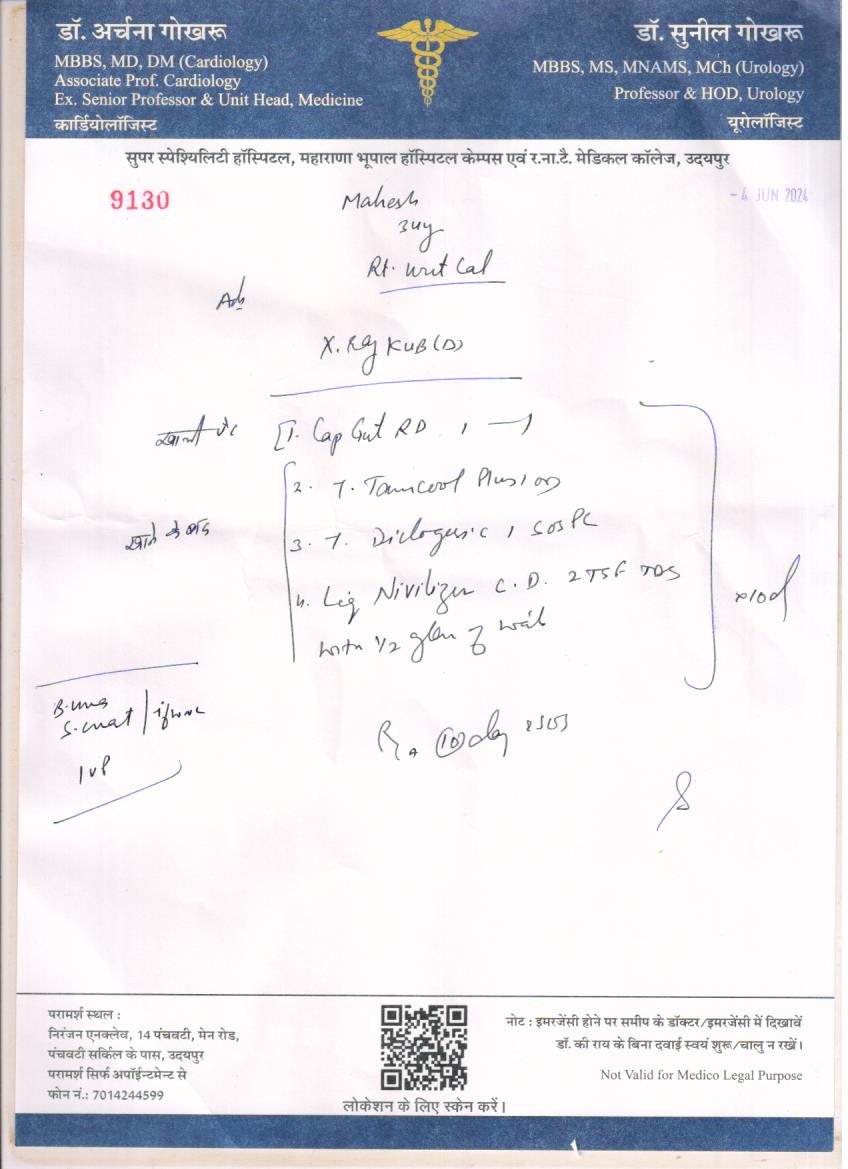 डॉ. अर्चना गोखरू
MBBS, MD, DM (Cardiology)
Associate Prof. Cardiology
Ex. Senior Professor & Unit Head, Medicine
कार्डियोलॉजिस्ट
डॉ. सुनील गोखरू
MBBS, MS, MNAMS, MCh (Urology)
Professor & HOD, Urology
यूरोलॉजिस्ट
सुपर स्पेश्यिलिटी हॉस्पिटल, महाराणा भूपाल हॉस्पिटल केम्पस एवं र.ना.टै. मेडिकल कॉलेज, उदयपुर
9130
- 4 JUN 2024
Mahesh
34y
Rt. Urit Cal
Adv
X. Ray KUB (D)
खाली पेट
1. Cap Gut RD 1
2. T. Tamcool Plus 1 OD
खाने के बाद
3. T. Diclogesic 1 SOS PC
4. Liq Nivilizer C.D. 2 TSF TDS
with 1/2 glass of
x10d
B. urea
S. creat
IVP
10 day
परामर्श स्थल :
निरंजन एनक्लेव, 14 पंचवटी, मेन रोड,
पंचवटी सर्किल के पास, उदयपुर
परामर्श सिर्फ अपॉईन्टमेन्ट से
फोन नं.: 7014244599
लोकेशन के लिए स्केन करें।
नोट : इमरजेंसी होने पर समीप के डॉक्टर/इमरजेंसी में दिखावें
डॉ. की राय के बिना दवाई स्वयं शुरू/चालु न रखें।
Not Valid for Medico Legal Purpose